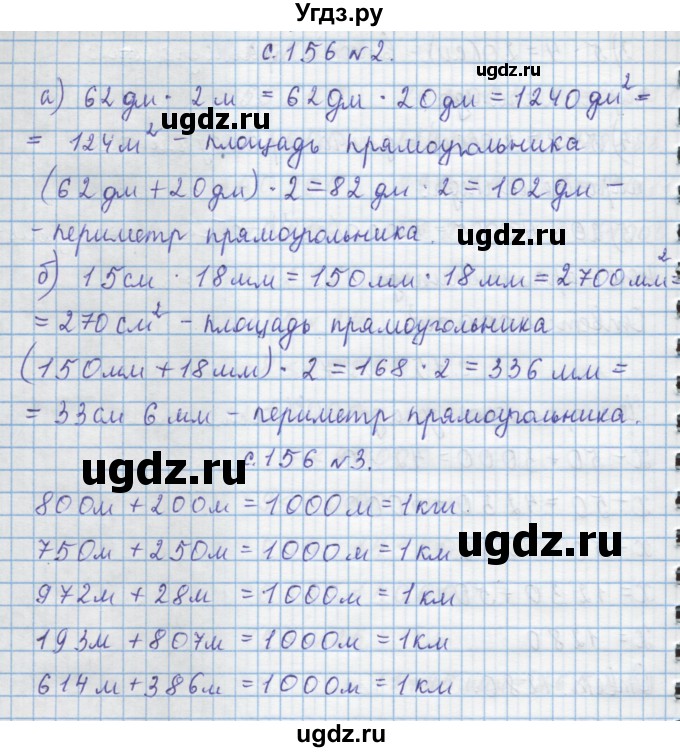 Угдз.ру
с. 156 №2.
ugdz.ru
а) 62 дм · 2 м = 62 дм · 20 дм = 1240 дм² =
ugdz.ru
= 124 м² - площадь прямоугольника
(62 дм + 20 дм) · 2 = 82 дм · 2 = 102 дм -
- периметр прямоугольника.
ugdz.ru
б) 15 см · 18 мм = 150 мм · 18 мм = 2700 мм² =
= 270 см² - площадь прямоугольника
(150 мм + 18 мм) · 2 = 168 · 2 = 336 мм =
= 33 см 6 мм - периметр прямоугольника.
ugdz.ru
с. 156 №3.
800 м + 200 м = 1000 м = 1 км.
ugdz.ru
750 м + 250 м = 1000 м = 1 км
972 м + 28 м = 1000 м = 1 км
193 м + 807 м = 1000 м = 1 км
614 м + 386 м = 1000 м = 1 км
ugdz.ru